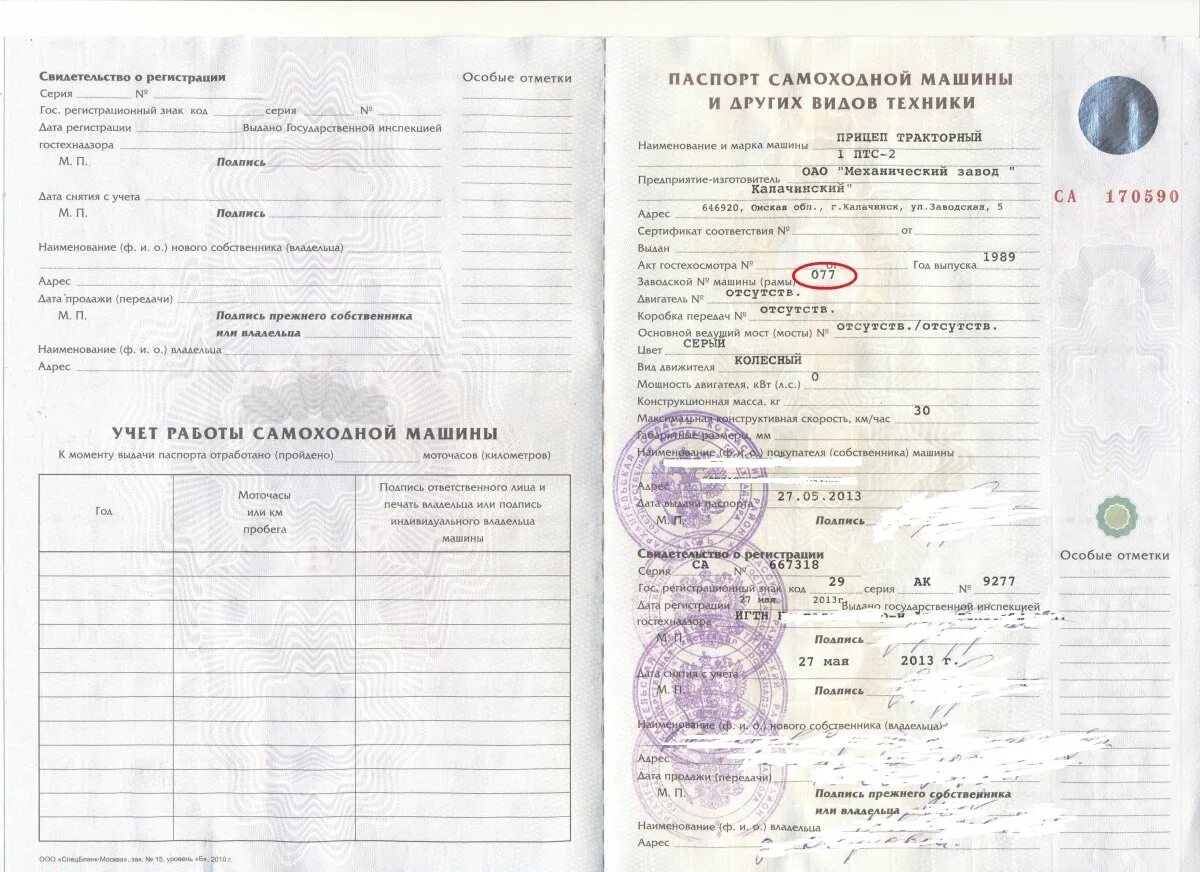 Свидетельство о регистрации
Серия № 
Гос. регистрационный знак код серия №
Дата регистрации Выдано Государственной инспекцией
гостехнадзора
М. П. Подпись
Дата снятия с учета
М. П. Подпись
Наименование (ф. и. о.) нового собственника (владельца)
Адрес
Дата продажи (передачи)
М. П. Подпись прежнего собственника
или владельца
Наименование (ф. и. о.) владельца
Адрес
Особые отметки
УЧЕТ РАБОТЫ САМОХОДНОЙ МАШИНЫ
К моменту выдачи паспорта отработано (пройдено) моточасов (километров)
Год
Моточасы
или км
пробега
Подпись ответственного лица и
печать владельца или подпись
индивидуального владельца
машины
ООО «СпецБланк-Москва», зак. № 15, уровень «Б», 2010 г.
ПАСПОРТ САМОХОДНОЙ МАШИНЫ
И ДРУГИХ ВИДОВ ТЕХНИКИ
СА 170590
Наименование и марка машины ПРИЦЕП ТРАКТОРНЫЙ
1 ПТС-2
Предприятие-изготовитель ОАО "Механический завод "
Калачинский"
Адрес 646920, Омская обл., г.Калачинск, ул.Заводская, 5
Сертификат соответствия № от
Выдан
Акт гостехосмотра № от Год выпуска 1989
Заводской № машины (рамы) 077
Двигатель № отсутств.
Коробка передач № отсутств.
Основной ведущий мост (мосты) № отсутств./отсутств.
Цвет СЕРЫЙ
Вид движителя КОЛЕСНЫЙ
Мощность двигателя, кВт (л.с.) 0
Конструкционная масса, кг
Максимальная конструктивная скорость, км/час 30
Габаритные размеры, мм
Наименование (ф. и. о.) покупателя (собственника) машины
Адрес
Дата выдачи паспорта 27.05.2013
М. П. Подпись
Свидетельство о регистрации
Серия СА № 667318
Гос. регистрационный знак код 29 серия АК № 9277
Дата регистрации 27 мая 2013г. Выдано государственной инспекцией
гостехнадзора ИГТН
М. П. Подпись
27 мая 2013 г.
Дата снятия с учета
М. П. Подпись
Наименование (ф. и. о.) нового собственника (владельца)
Адрес
Дата продажи (передачи)
М. П. Подпись прежнего собственника
или владельца
Наименование (ф. и. о.) владельца
Адрес
Особые отметки